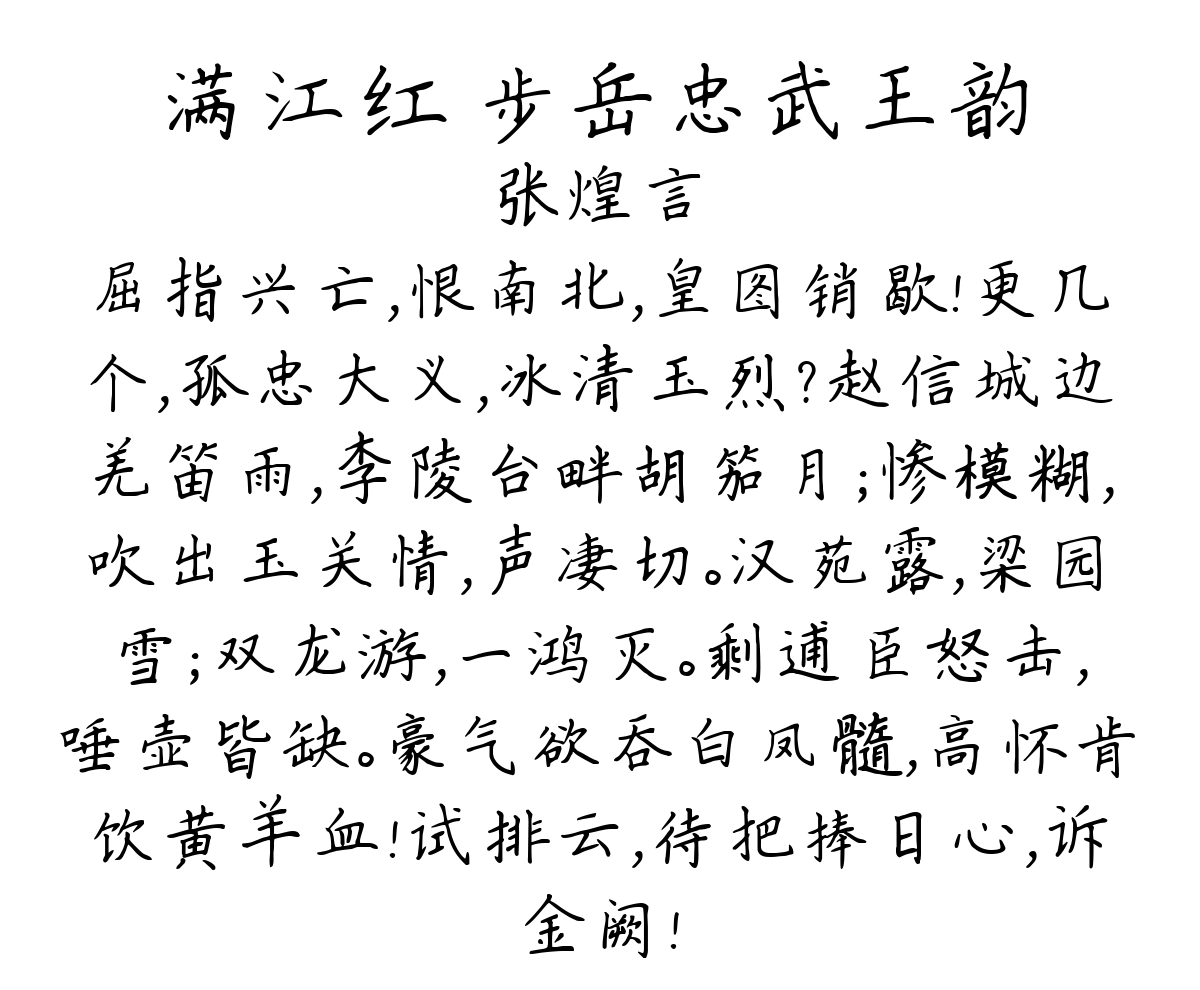 满江红 步岳忠武王韵
张煌言
屈指兴亡,恨南北,皇图销歇!更几
个,孤忠大义,冰清玉烈?赵信城边
羌笛雨,李陵台畔胡笳月;惨模糊,
吹出玉关情,声凄切。汉苑露,梁园
雪;双龙游,一鸿灭。剩逋臣怒击,
唾壶皆缺。豪气欲吞白凤髓,高怀肯
饮黄羊血!试排云,待把捧日心,诉
金阙!